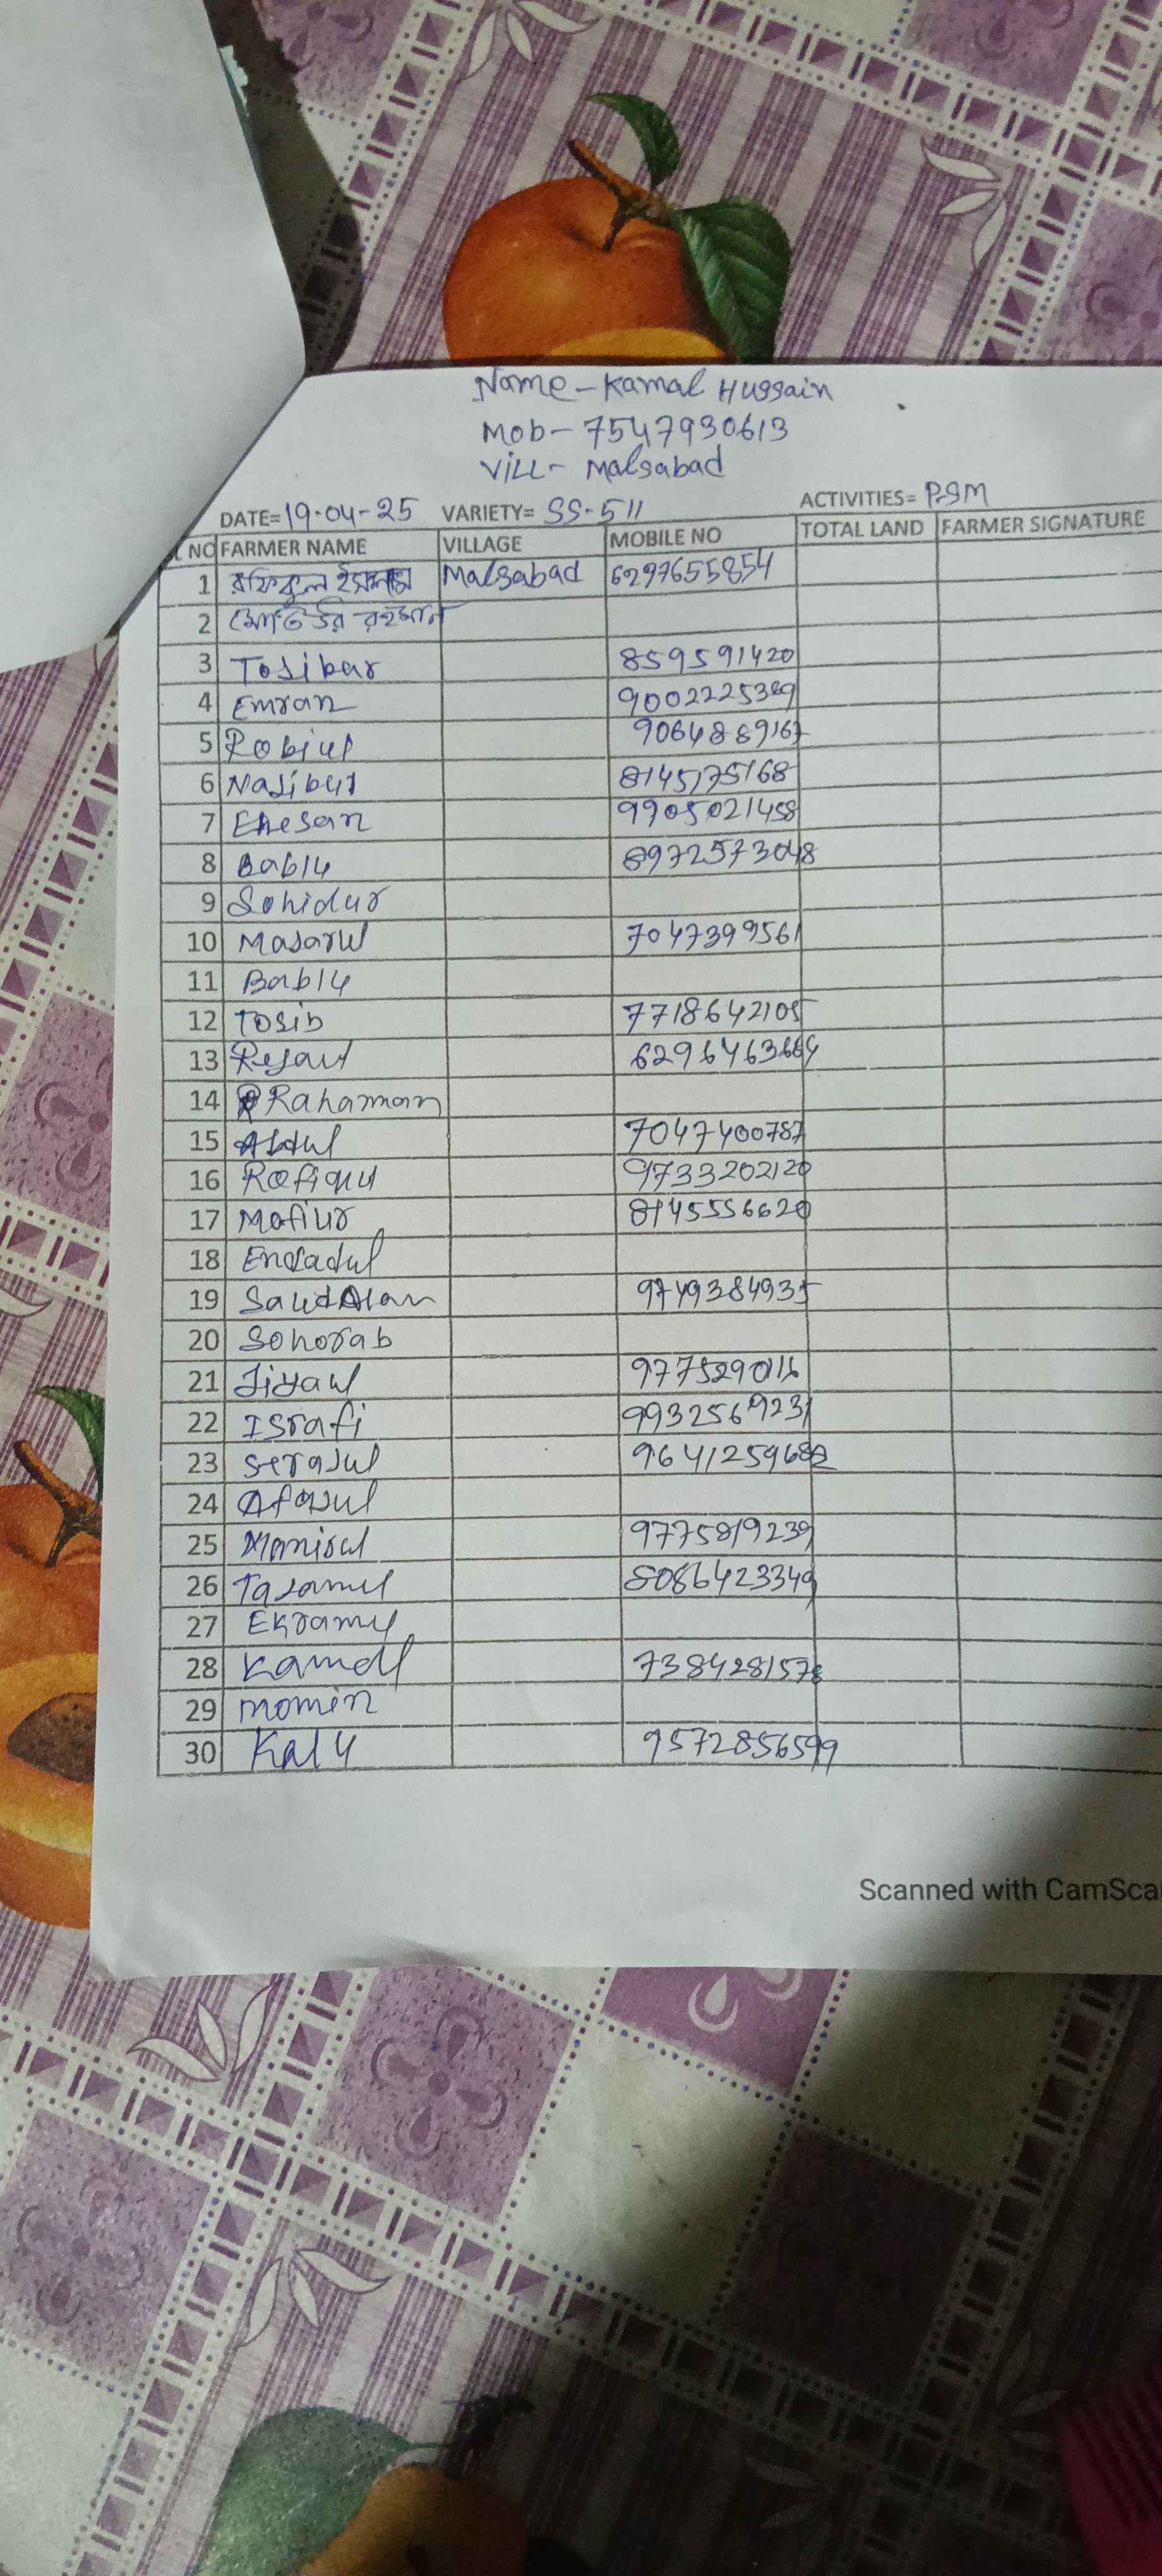 Name - Kamal Hussain
Mob - 7547930613
Vill - Malsabad
DATE= 19-04-25 VARIETY= SS-511 ACTIVITIES= PSM
NO FARMER NAME VILLAGE MOBILE NO TOTAL LAND FARMER SIGNATURE
1 রফিকুল ইসলাম Malsabad 6297655854
2 মোতিউর রহমান
3 Tosibar 859591420
4 Emran 9002225389
5 Robiul 9064889167
6 Nasibur 8145175168
7 Ehesan 9905021458
8 Bablu 8972573048
9 Sohidur
10 Masarul 7047399561
11 Bablu
12 Tosib 7718642105
13 Rejaul 6296463664
14 Rahaman
15 Abdul 7047400787
16 Rofiqul 9733202120
17 Mofiur 8145556620
18 Emdadul
19 Saud Alam 9749384935
20 Sohorab
21 Jiyaul 9775290116
22 Israfi 9932569231
23 Serajul 9641259682
24 Afajul
25 Manirul 9775819239
26 Tajamul 8086423349
27 Ekramul
28 Kamal 7384281578
29 momin
30 Kalu 9572856599
Scanned with CamSca